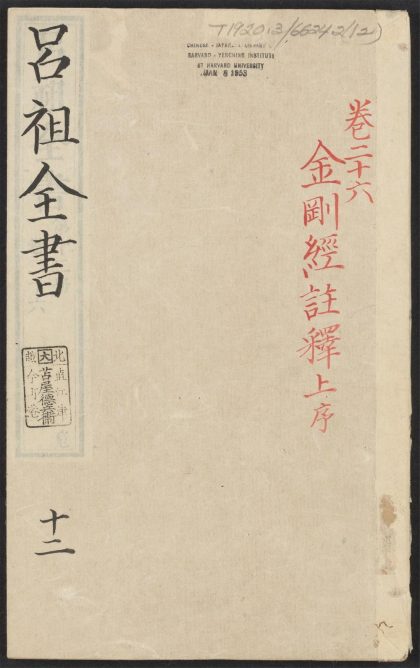 T1920.3/6624.2(12)
CHINESE - JAPANESE LIBRARY
HARVARD - YENCHING INSTITUTE
AT HARVARD UNIVERSITY
JAN 8 1953
卷二十六
金剛經註釋上序
呂祖全書
北直江津
大苫屋德兵衛
今町
十二